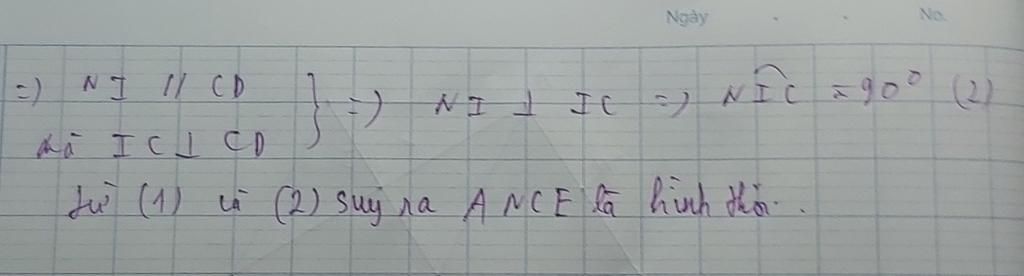 Ngày No.
=) NI // CD } =) NI ⊥ IC =) NÎC = 90° (2)
mà IC ⊥ CD
từ (1) và (2) suy ra ANCE là hình thoi.